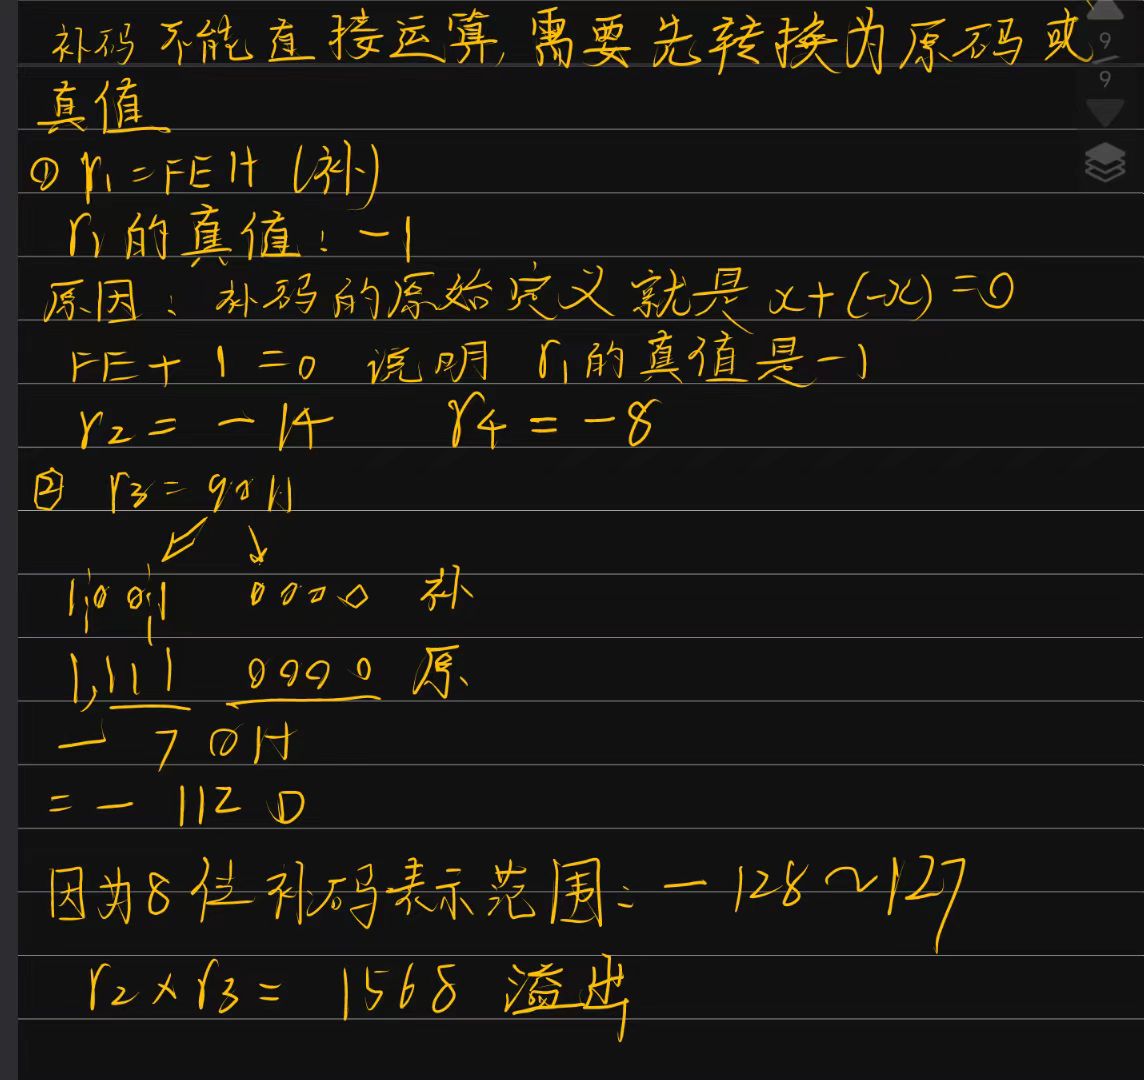 补码不能直接运算,需要先转换为原码或
真值
① r₁=FEH (补)
r₁的真值:-1
原因:补码的原始定义就是x+(-x)=0
FE+1=0 说明 r₁的真值是-1
r₂=-14 r₄=-8
② r₃=90H
1001 0000 补
1,111 0000 原
- 70H
=-112D
因为8位补码表示范围:-128~127
r₂×r₃=1568 溢出
9
9